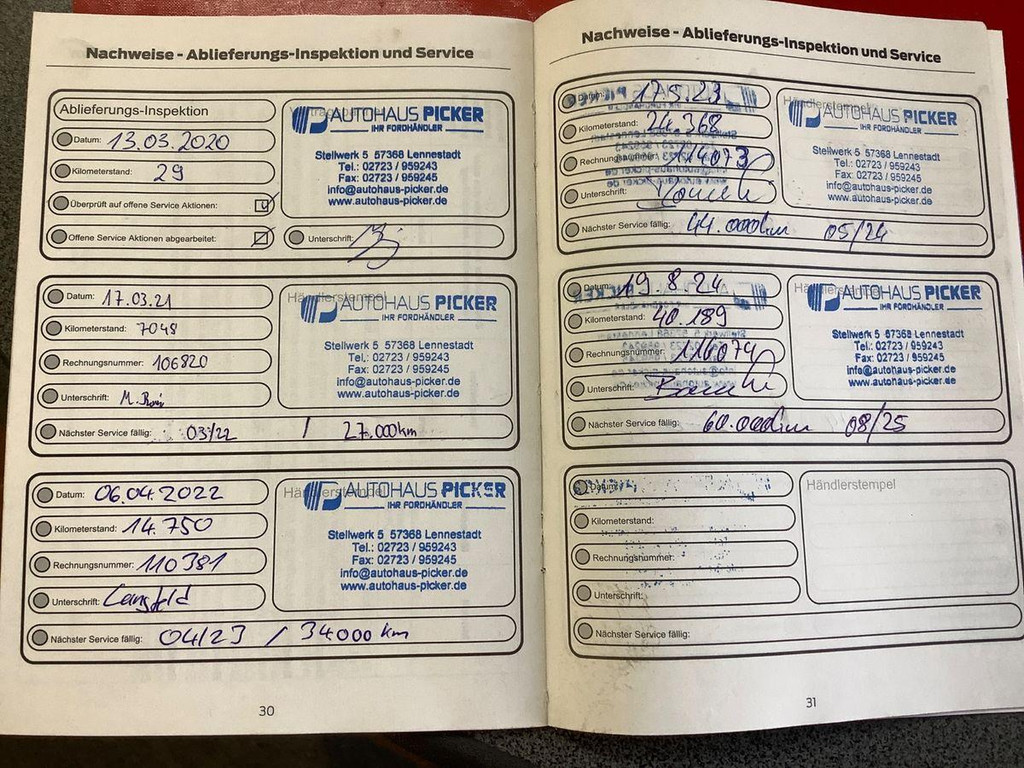 Nachweise - Ablieferungs-Inspektion und Service
Ablieferungs-Inspektion
Datum: 13.03.2020
Kilometerstand: 29
Überprüft auf offene Service Aktionen:
Offene Service Aktionen abgearbeitet:
AUTOHAUS PICKER
IHR FORDHÄNDLER
Stellwerk 5 57368 Lennestadt
Tel.: 02723 / 959243
Fax: 02723 / 959245
info@autohaus-picker.de
www.autohaus-picker.de
Unterschrift:
Datum: 17.03.21
Kilometerstand: 7048
Rechnungsnummer: 106820
Unterschrift:
Händlerstempel
AUTOHAUS PICKER
IHR FORDHÄNDLER
Stellwerk 5 57368 Lennestadt
Tel.: 02723 / 959243
Fax: 02723 / 959245
info@autohaus-picker.de
www.autohaus-picker.de
Nächster Service fällig: 03/22 / 27.000km
Datum: 06.04.2022
Kilometerstand: 14.750
Rechnungsnummer: 110381
Unterschrift: Langfeld
Händlerstempel
AUTOHAUS PICKER
IHR FORDHÄNDLER
Stellwerk 5 57368 Lennestadt
Tel.: 02723 / 959243
Fax: 02723 / 959245
info@autohaus-picker.de
www.autohaus-picker.de
Nächster Service fällig: 04/23 / 34000 km
30
Nachweise - Ablieferungs-Inspektion und Service
17.5.23
Kilometerstand: 24.368
Rechnungsnummer: 114073
Unterschrift:
Händlerstempel
AUTOHAUS PICKER
IHR FORDHÄNDLER
Stellwerk 5 57368 Lennestadt
Tel.: 02723 / 959243
Fax: 02723 / 959245
info@autohaus-picker.de
www.autohaus-picker.de
Nächster Service fällig: 44.000km 05/24
Datum: 19.8.24
Kilometerstand: 40.189
Rechnungsnummer: 116074
Unterschrift:
Händlerstempel
AUTOHAUS PICKER
IHR FORDHÄNDLER
Stellwerk 5 57368 Lennestadt
Tel.: 02723 / 959243
Fax: 02723 / 959245
info@autohaus-picker.de
www.autohaus-picker.de
Nächster Service fällig: 60.000km 08/25
Datum:
Kilometerstand:
Rechnungsnummer:
Unterschrift:
Händlerstempel
Nächster Service fällig:
31